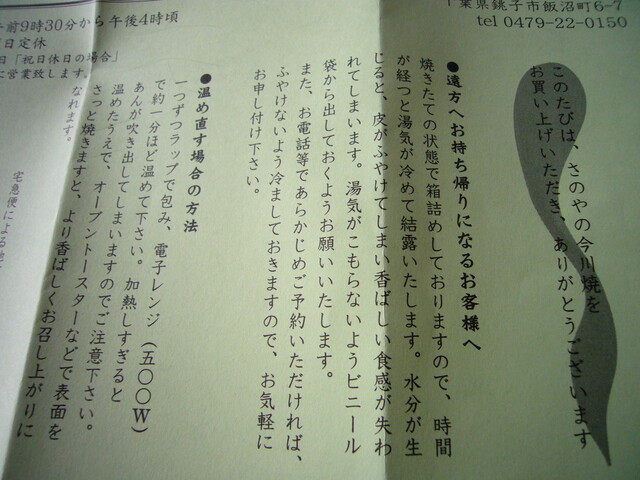 千葉県銚子市飯沼町6-7
tel 0479-22-0150
このたびは、さのやの今川焼を
お買い上げいただき、ありがとうございます
●遠方へお持ち帰りになるお客様へ
焼きたての状態で箱詰めしておりますので、時間
が経つと湯気が冷めて結露いたします。水分が生
じると、皮がふやけてしまい香ばしい食感が失わ
れてしまいます。湯気がこもらないようビニール
袋から出しておくようお願いいたします。
また、お電話等であらかじめご予約いただければ、
ふやけないよう冷ましておきますので、お気軽に
お申し付け下さい。
●温め直す場合の方法
一つずつラップで包み、電子レンジ（五〇〇W）
で約一分ほど温めて下さい。加熱しすぎると
あんが吹き出してしまいますのでご注意下さい。
温めたうえで、オーブントースターなどで表面を
さっと焼きますと、より香ばしくお召し上がりに
なれます。
午前9時30分から午後4時頃
日定休
日「祝日休日の場合」
に営業致します。
宅急便による地